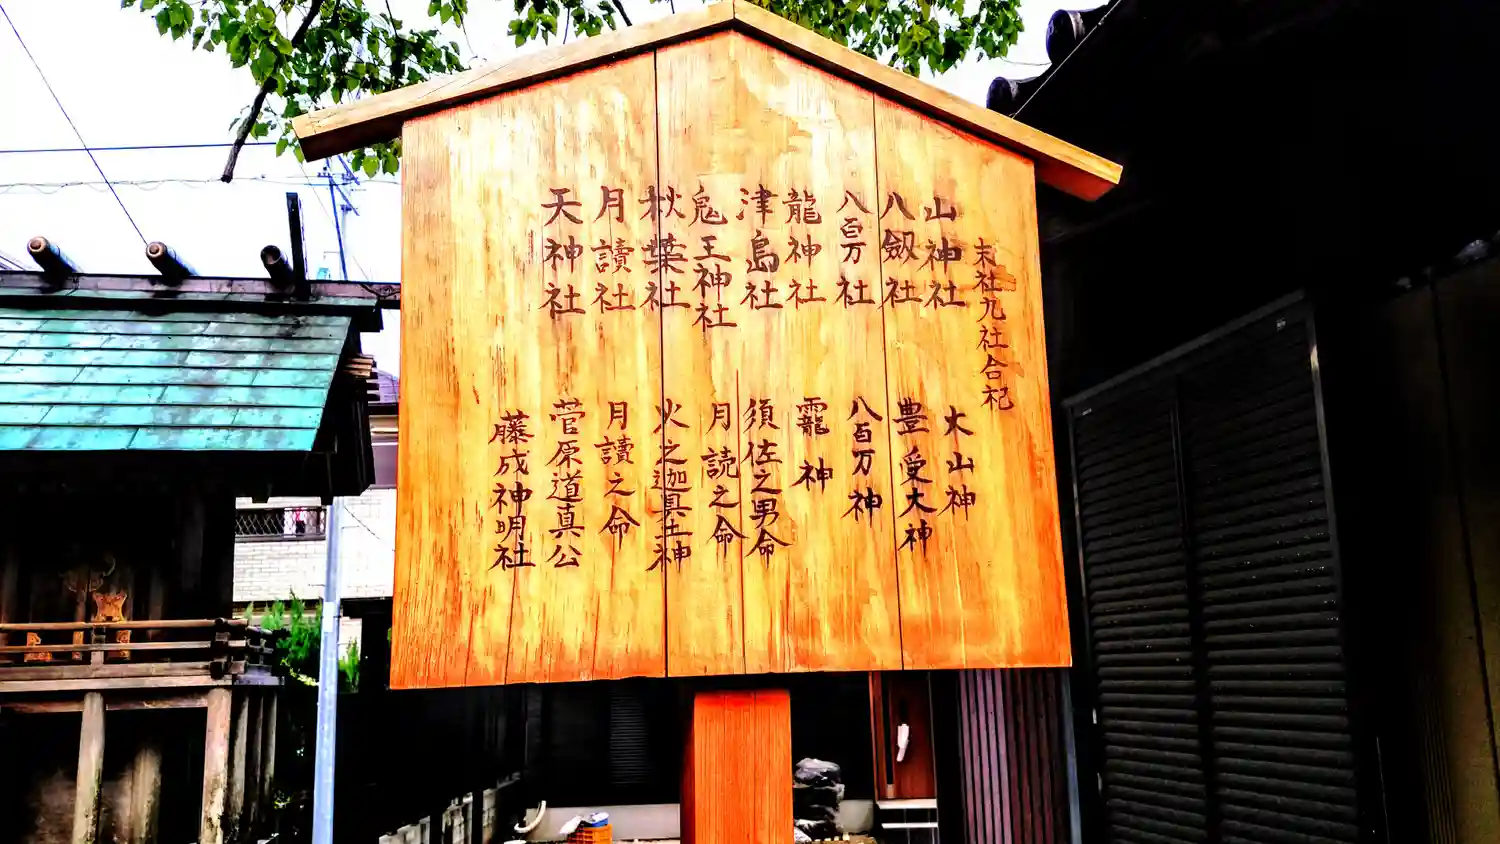 末社九社合祀
山神社 大山神
八劔社 豊受大神
八百万社 八百万神
龍神社 靇神
津島社 須佐之男命
鬼王神社 月読之命
秋葉社 火之迦具土神
月讀社 月讀之命
天神社 菅原道真公
藤成神明社